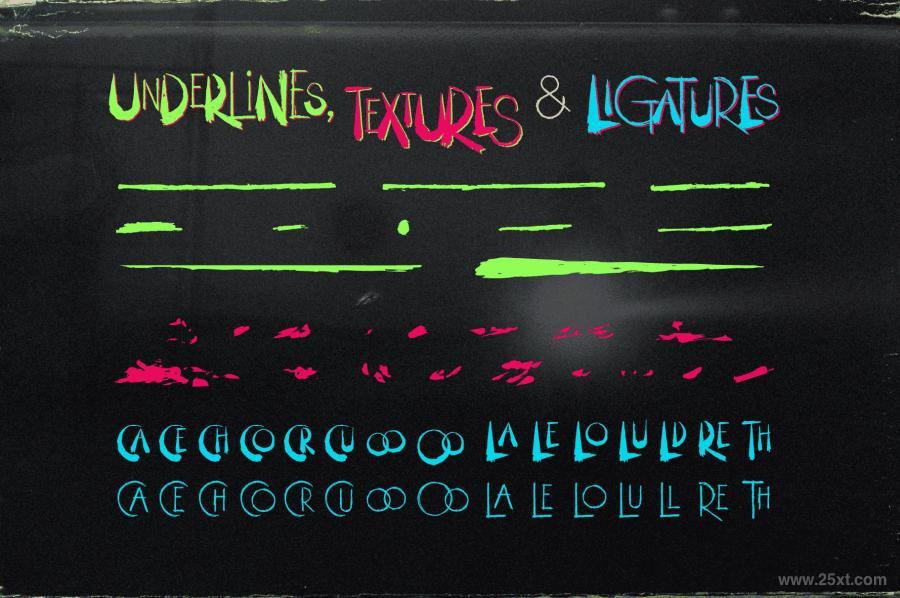 UNDERLINES, TEXTURES & LIGATURES
CA CE CH CO CR CU OO OO LA LE LO LU LD RE TH
CA CE CH CO CR CU OO OO LA LE LO LU LL RE TH
www.25xt.com